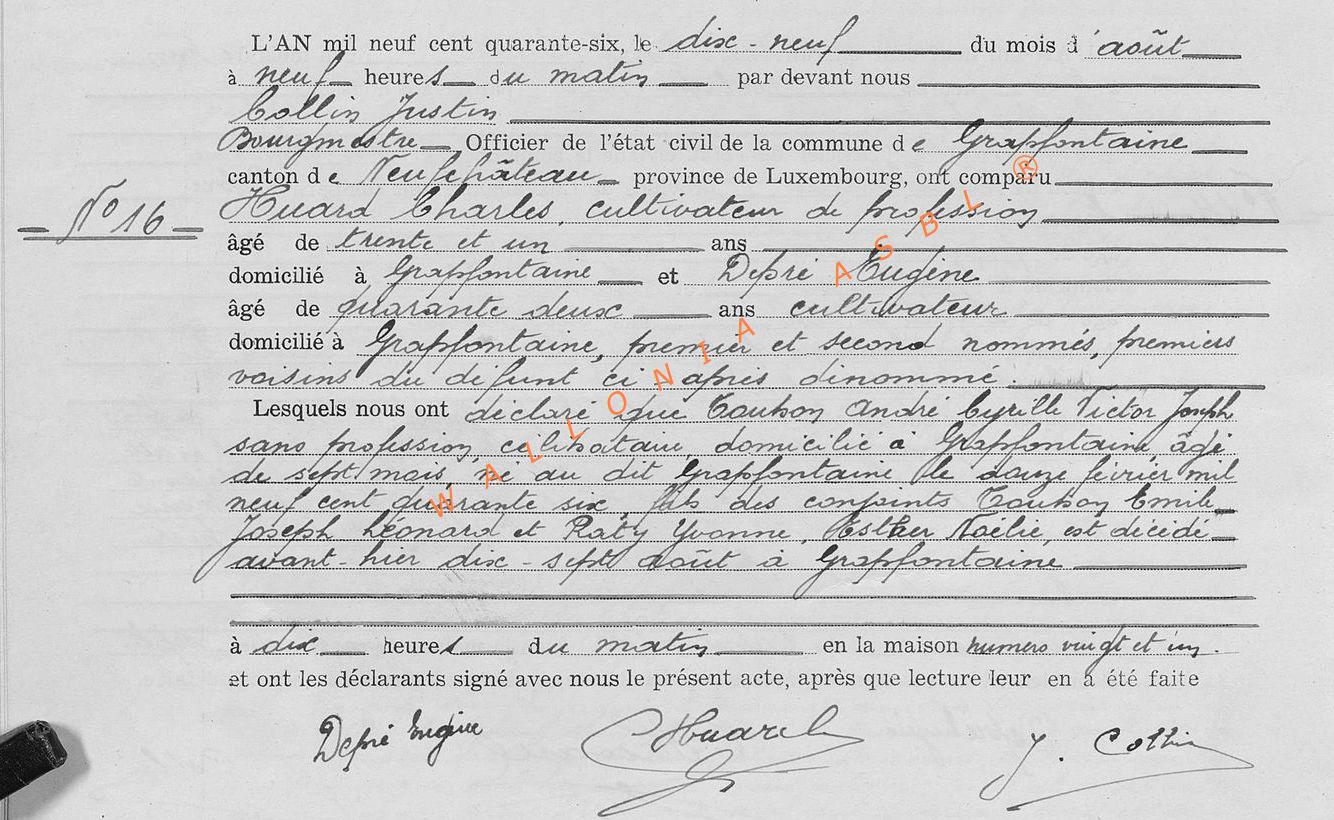 L'AN mil neuf cent quarante-six, le dix-neuf du mois d'août
à neuf heures du matin par devant nous
Collin Justin
Bourgmestre Officier de l'état civil de la commune de Grapfontaine
canton de Neufchâteau province de Luxembourg, ont comparu
N° 16
Huard Charles, cultivateur de profession
âgé de trente et un ans
domicilié à Grapfontaine et Depré Eugène
âgé de quarante deux ans cultivateur
domicilié à Grapfontaine, premier et second nommés, premiers
voisins du défunt ci après dénommé.
Lesquels nous ont déclaré que André Cyrille Victor Joseph
sans profession, célibataire, domicilié à Grapfontaine, âgé
de sept mois, né au dit Grapfontaine le douze février mil
neuf cent quarante six, fils des conjoints Emile
Joseph Léonard et Raty Yvonne, Esther Noëlie, est décédé
avant-hier dix-sept août à Grapfontaine
à dix heures du matin en la maison numéro vingt et un.
et ont les déclarants signé avec nous le présent acte, après que lecture leur en a été faite
Depré Eugène CHuard J. Collin
WALLONIA ASBL ®